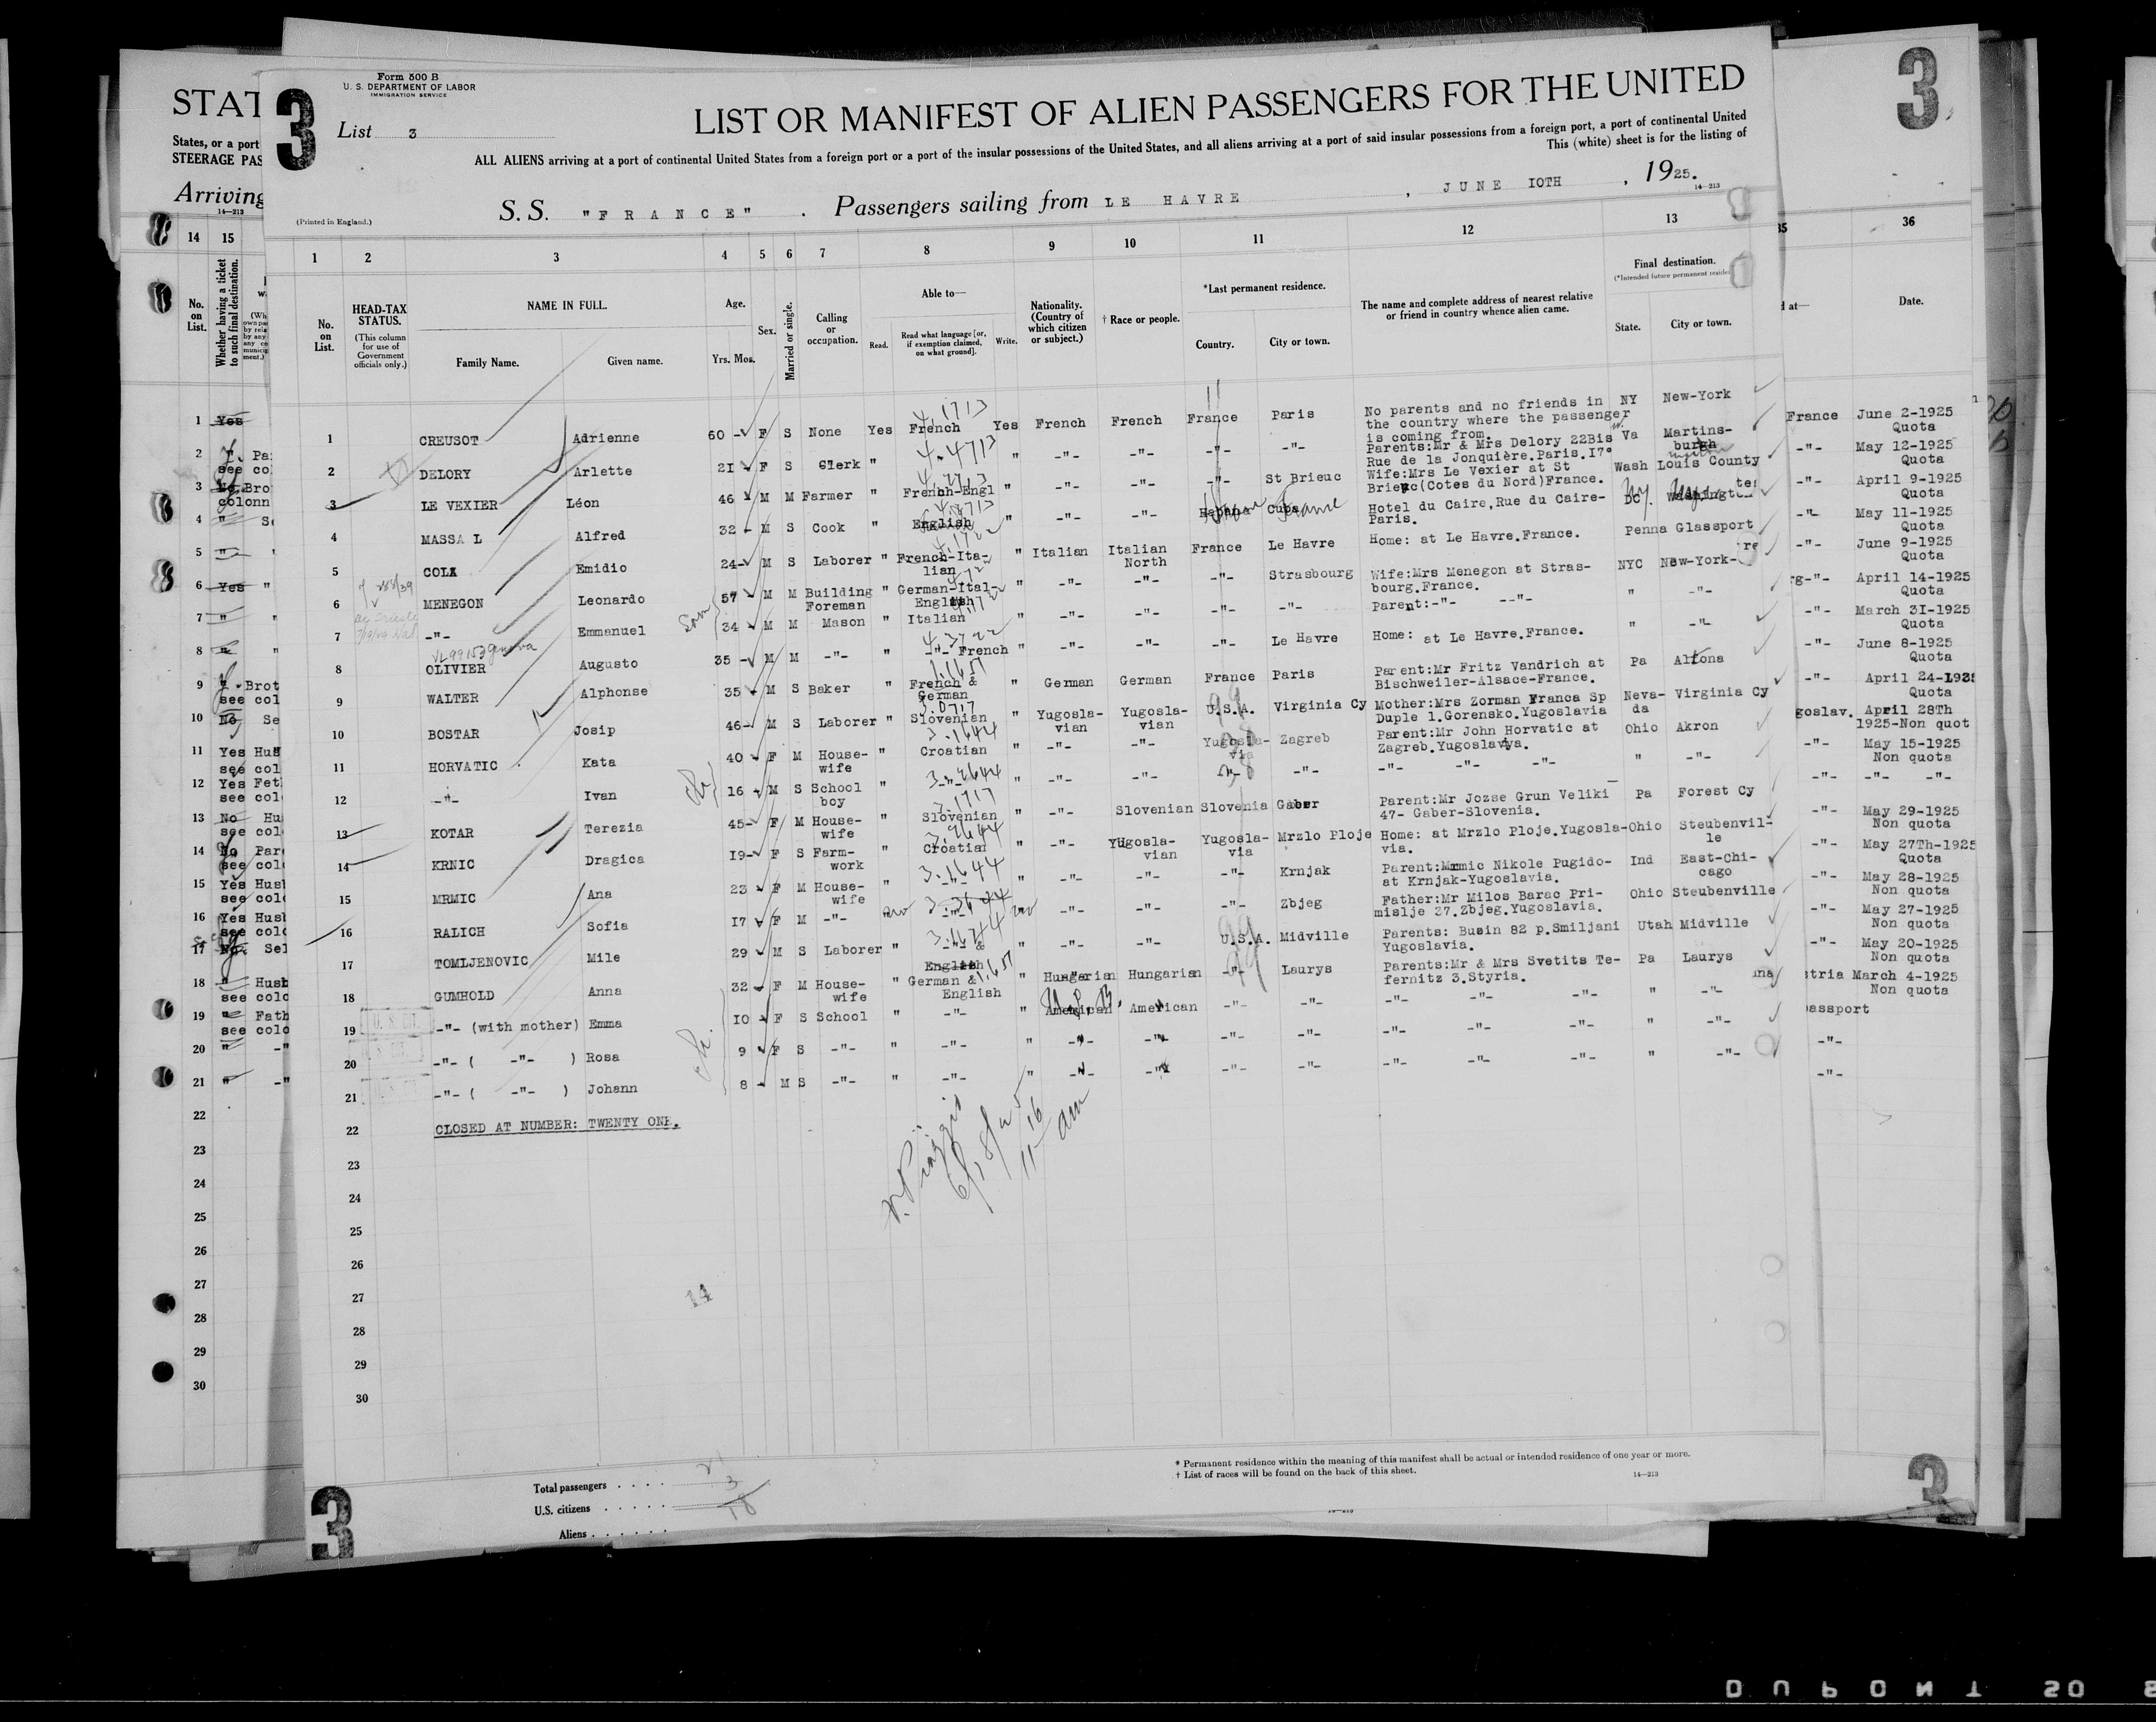 Form 500 B
U. S. DEPARTMENT OF LABOR
IMMIGRATION SERVICE
3
List 3
LIST OR MANIFEST OF ALIEN PASSENGERS FOR THE UNITED
ALL ALIENS arriving at a port of continental United States from a foreign port or a port of the insular possessions of the United States, and all aliens arriving at a port of said insular possessions from a foreign port, a port of continental United
This (white) sheet is for the listing of
S. S. "FRANCE" . Passengers sailing from LE HAVRE , JUNE 10TH , 1925.
14—213
(Printed in England.)
1 2 3 4 5 6 7 8 9 10 11 12 13
No. on List.
HEAD-TAX STATUS.
(This column for use of Government officials only.)
NAME IN FULL.
Family Name. Given name.
Age.
Yrs. Mos.
Sex.
Married or single.
Calling or occupation.
Able to—
Read. Read what language [or, if exemption claimed, on what ground]. Write.
Nationality. (Country of which citizen or subject.)
† Race or people.
*Last permanent residence.
Country. City or town.
The name and complete address of nearest relative or friend in country whence alien came.
Final destination.
State. City or town.
1 CREUSOT Adrienne 60 F S None Yes French Yes French French France Paris No parents and no friends in the country where the passenger is coming from. NY New-York
2 DELORY Arlette 21 F S Clerk " -"- " -"- -"- -"- -"- Parents:Mr & Mrs Delory 22Bis Rue de la Jonquière.Paris.17° Va Martins-burgh
3 LE VEXIER Léon 46 M M Farmer " French-Engl " -"- -"- -"- St Brieuc Wife:Mrs Le Vexier at St Brieuc(Cotes du Nord)France. Wash Louis County
4 MASSA L Alfred 32 M S Cook " English " -"- -"- Habana Cuba Hotel du Caire,Rue du Caire-Paris. DC Washington
5 COLA Emidio 24 M S Laborer " French-Ita-lian " Italian Italian North France Le Havre Home: at Le Havre.France. Penna Glassport
6 MENEGON Leonardo 57 M M Building Foreman " German-Ital-English " -"- -"- -"- Strasbourg Wife:Mrs Menegon at Stras-bourg.France. NYC New-York-
7 -"- Emmanuel 34 M M Mason " Italian " -"- -"- -"- -"- Parent:-"- --"- " -"-
8 OLIVIER Augusto 35 M M -"- " -"- French " -"- -"- -"- Le Havre Home: at Le Havre.France. " -"-
9 WALTER Alphonse 35 M S Baker " French & German " German German France Paris Parent:Mr Fritz Vandrich at Bischweiler-Alsace-France. Pa Altona
10 BOSTAR Josip 46 M S Laborer " Slovenian " Yugosla-vian Yugosla-vian U.S.A. Virginia Cy Mother:Mrs Zorman Franca Sp Duple 1.Gorensko.Yugoslavia Neva-da Virginia Cy
11 HORVATIC Kata 40 F M House-wife " Croatian " -"- -"- Yugosla-via Zagreb Parent:Mr John Horvatic at Zagreb.Yugoslavya. Ohio Akron
12 -"- Ivan 16 M S School boy " -"- " -"- -"- -"- -"- -"- -"- -"- " -"-
13 KOTAR Terezia 45 F M House-wife " Slovenian " -"- Slovenian Slovenia Gaber Parent:Mr Jozse Grun Veliki 47- Gaber-Slovenia. Pa Forest Cy
14 KRNIC Dragica 19 F S Farm-work " Croatian " -"- Yugosla-vian Yugosla-via Mrzlo Ploje Home: at Mrzlo Ploje.Yugosla-via. Ohio Steubenvil-le
15 MRMIC Ana 23 F M House-wife " -"- " -"- -"- -"- Krnjak Parent:Mrmic Nikole Pugido-at Krnjak-Yugoslavia. Ind East-Chi-cago
16 RALICH Sofia 17 F M -"- no -"- no -"- -"- -"- Zbjeg Father:Mr Milos Barac Pri-mislje 27.Zbjeg.Yugoslavia. Ohio Steubenville
17 TOMLJENOVIC Mile 29 M S Laborer " -"- & English " -"- -"- U.S.A. Midville Parents: Busin 82 p.Smiljani Yugoslavia. Utah Midville
18 GUMHOLD Anna 32 F M House-wife " German & English " Hungarian Hungarian -"- Laurys Parents:Mr & Mrs Svetits Te-fernitz 3.Styria. Pa Laurys
19 -"- (with mother) Emma 10 F S School " -"- " American American -"- -"- -"- -"- -"- " -"-
20 -"- ( -"- ) Rosa 9 F S -"- " -"- " -"- -"- -"- -"- -"- -"- -"- " -"-
21 -"- ( -"- ) Johann 8 M S -"- " -"- " -"- -"- -"- -"- -"- -"- -"- " -"-
22 CLOSED AT NUMBER: TWENTY ONE.
23
24
25
26
27
28
29
30
14
Total passengers 21
U.S. citizens 3
Aliens 18
* Permanent residence within the meaning of this manifest shall be actual or intended residence of one year or more.
† List of races will be found on the back of this sheet.
14—213
3
STAT
States, or a port
STEERAGE PAS
Arriving
14—213
14 15
No. on List.
Whether having a ticket to such final destination.
1 Yes
2 " Pa
see co
3 No Bro
colonn
4 "
5 "
6 Yes "
7 " "
8 " "
9 " Brot
see col
10 No Se
11 Yes Hus
see col
12 Yes Fet
see col
13 No Hu
see col
14 No Par
see col
15 Yes Hus
see col
16 Yes Husb
see colo
17 No Sel
18 " Husb
see colo
19 " Fath
see colo
20 " -"-
21 " -"
22
23
24
25
26
27
28
29
30
3
35 36
d at— Date.
France June 2-1925 Quota
-"- May 12-1925 Quota
-"- April 9-1925 Quota
-"- May 11-1925 Quota
-"- June 9-1925 Quota
rg-"- April 14-1925 Quota
-"- March 31-1925 Quota
-"- June 8-1925 Quota
-"- April 24-1925 Quota
goslav. April 28Th 1925-Non quot
-"- May 15-1925 Non quota
-"- -"- -"-
-"- May 29-1925 Non quota
-"- May 27Th-1925 Quota
-"- May 28-1925 Non quota
-"- May 27-1925 Non quota
-"- May 20-1925 Non quota
stria March 4-1925 Non quota
assport
-"-
-"-
3
DUPONT